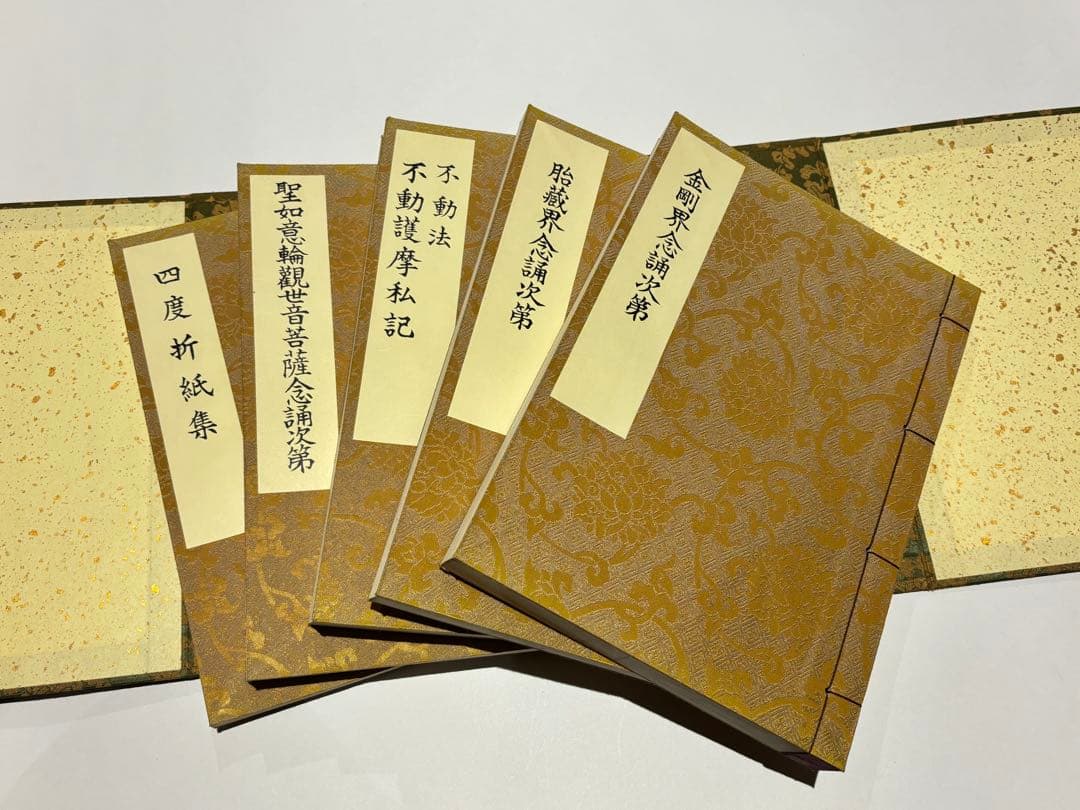 金剛界念誦次第
胎藏界念誦次第
不動法
不動護摩私記
聖如意輪觀世音菩薩念誦次第
四度折紙集